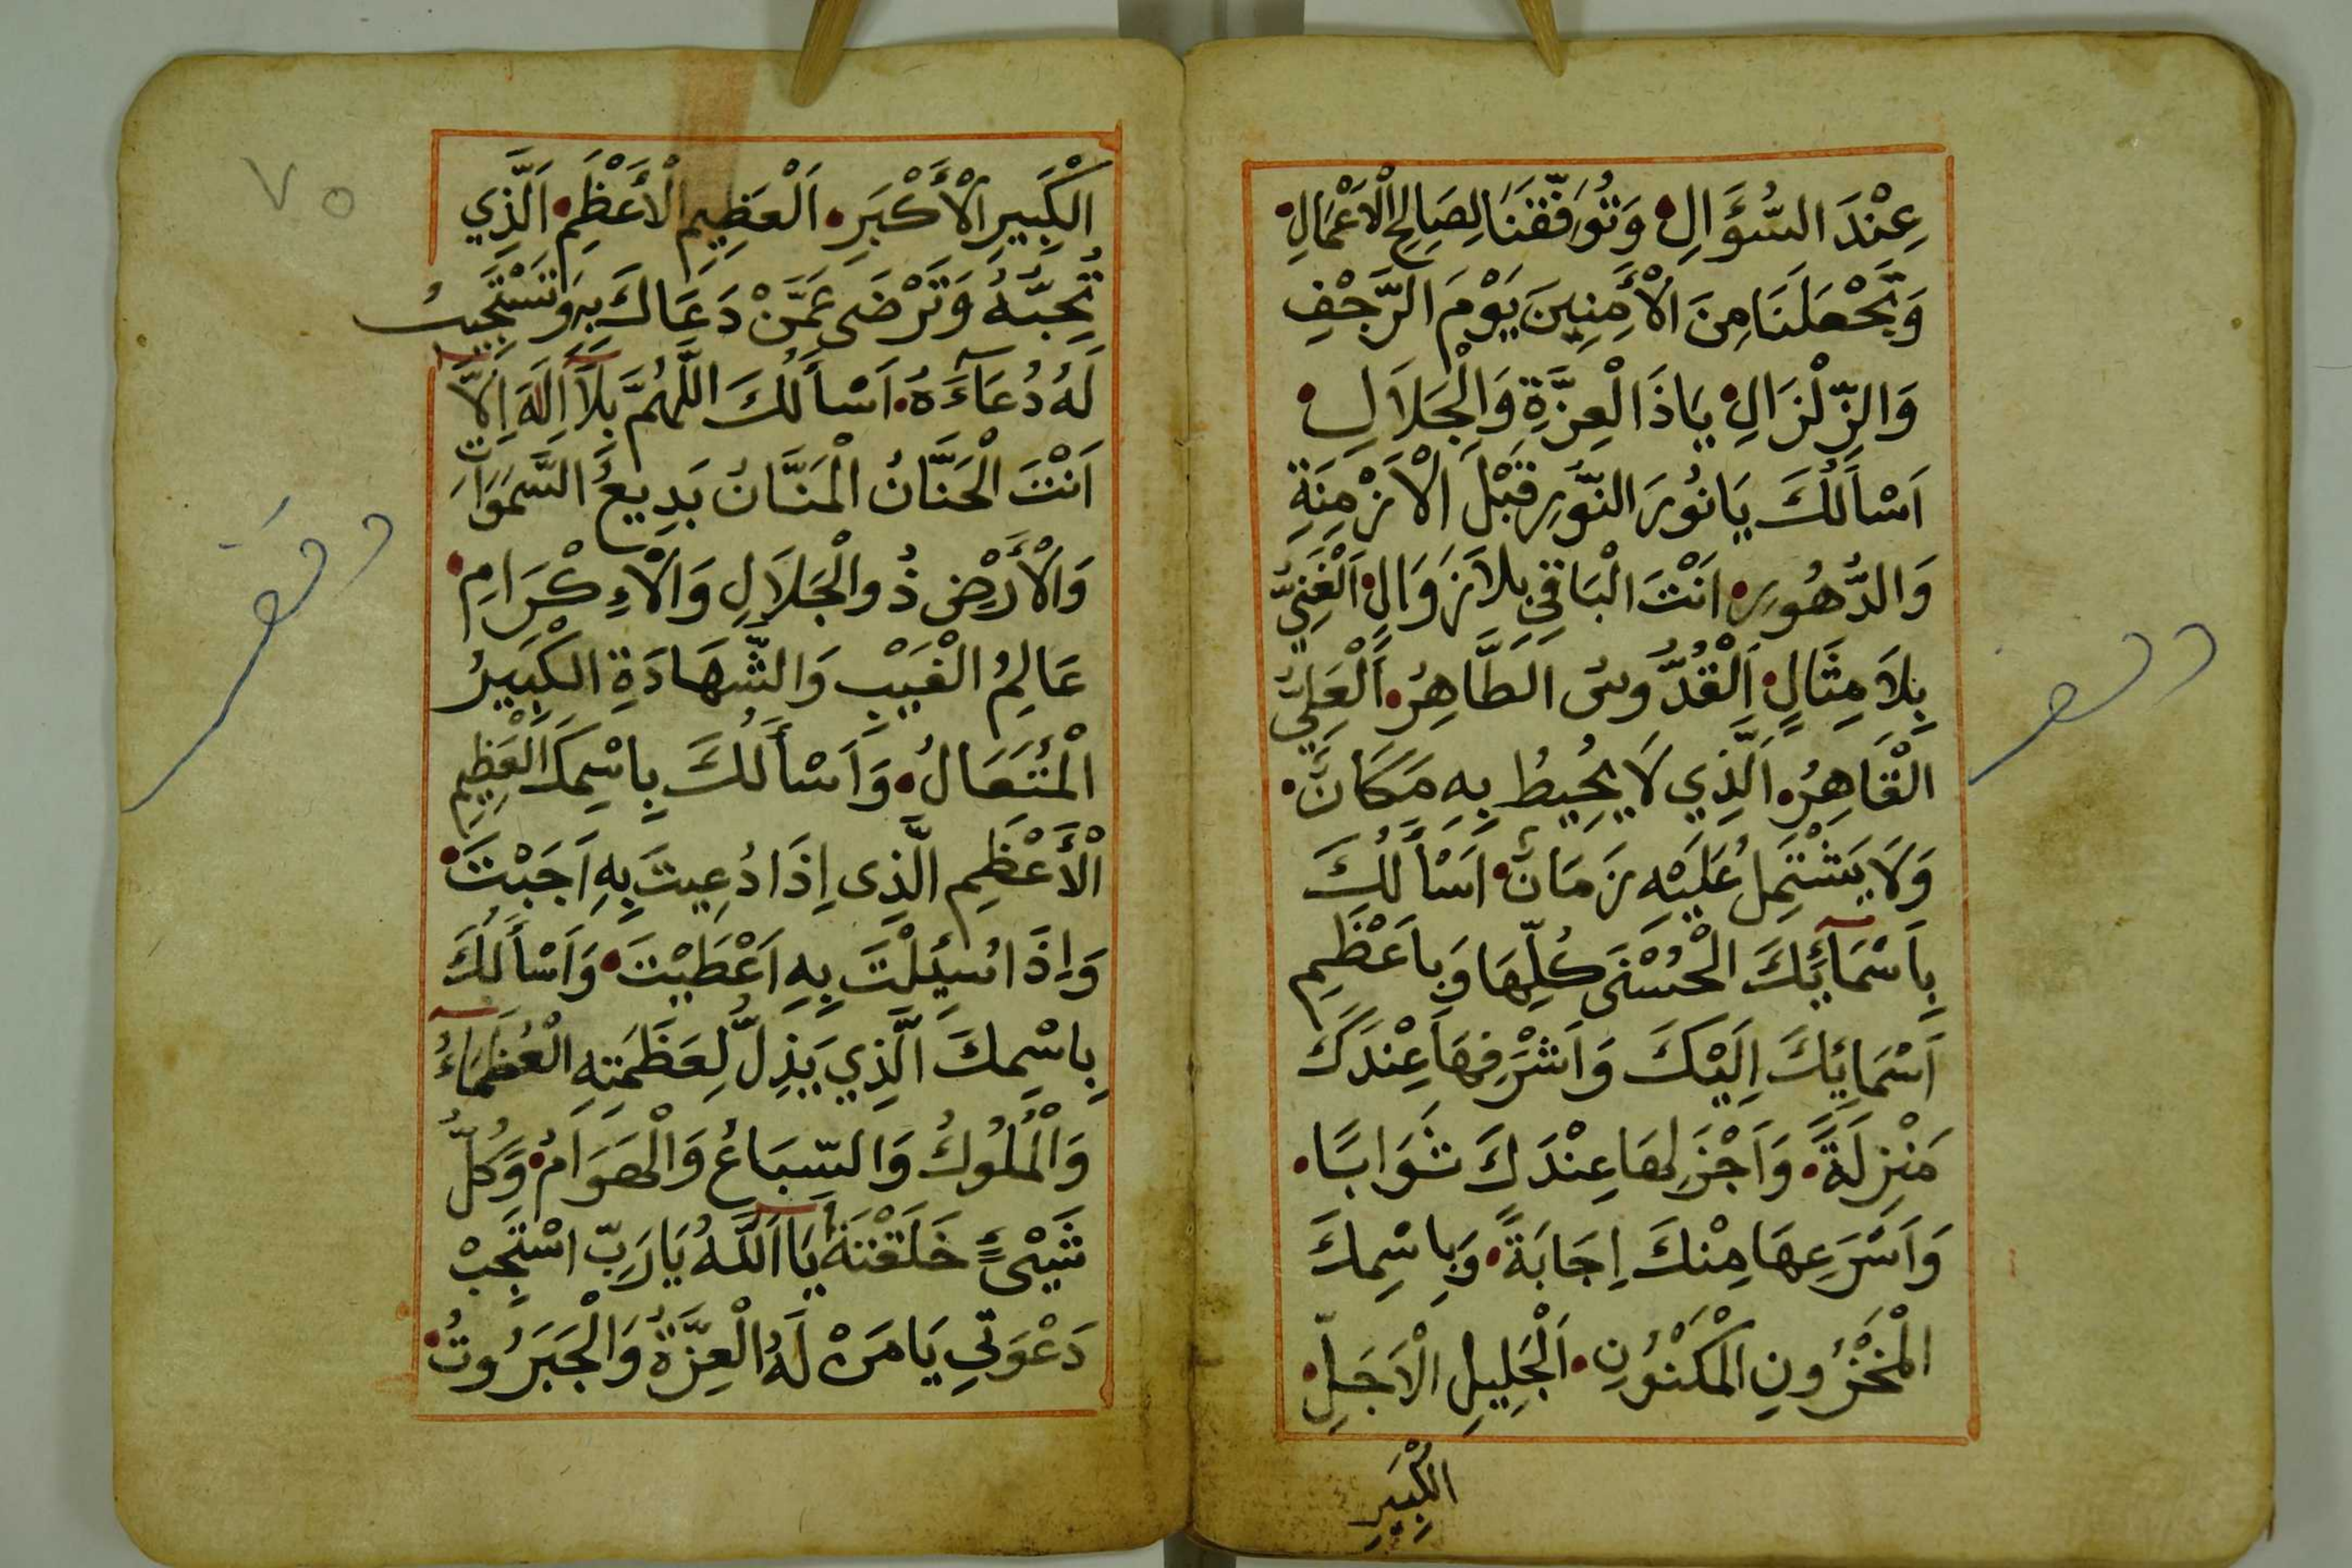 عِنْدَ السُّؤَالِ • وَتُوَفِّقَنَا لِصَالِحِ الْاَعْمَالِ •
وَتَجْعَلَنَا مِنَ الْأَمِنِينَ يَوْمَ الرَّجْفِ
وَالزِّلْزَالِ • يَاذَا لْعِزَّةِ وَالْجَلَالِ •
اَسْأَلُكَ يَانُورَ النُّورِ قَبْلَ الْاَزْمِنَةِ
وَالدُّهُورِ • اَنْتَ الْبَاقِي بِلَا زَوَالٍ • اَلْغَنِيُّ
بِلَا مِثَالٍ • اَلْقُدُّوسُ الطَّاهِرُ • اَلْعَلِيُّ
الْقَاهِرُ • اَلَّذِي لَا يُحِيطُ بِهِ مَكَانٌ •
وَلَا يَشْتَمِلُ عَلَيْهِ زَمَانٌ • اَسْأَلُكَ
بِاَسْمَآئِكَ الْحُسْنَى كُلِّهَا وَبِاَعْظَمِ
اَسْمَائِكَ اِلَيْكَ وَاَشْرَفِهَا عِنْدَكَ
مَنْزِلَةً • وَاَجْزَلِهَا عِنْدَكَ ثَوَابًا •
وَاَسْرَعِهَا مِنْكَ اِجَابَةً • وَبِاسْمِكَ
الْمَخْزُونِ الْمَكْنُونِ • اَلْجَلِيلِ الْاَجَلِّ •
الْكَبِيرِ
٧٥
الْكَبِيرِ الْأَكْبَرِ • اَلْعَظِيمِ الْأَعْظَمِ • اَلَّذِي
تُحِبُّهُ وَتَرْضَى عَمَّنْ دَعَاكَ بِهِ وَتَسْتَجِيبُ
لَهُ دُعَآءَهُ • اَسْأَلُكَ اللَّهُمَّ بِلَآ اِلَهَ اِلَّآ
اَنْتَ الْحَنَّانُ الْمَنَّانُ بَدِيعُ السَّمَوَاتِ
وَالْأَرْضِ ذُو الْجَلَالِ وَالْاِءكْرَامِ •
عَالِمُ الْغَيْبِ وَالشَّهَادَةِ الْكَبِيرُ
الْمُتَعَالُ • وَاَسْأَلُكَ بِاسْمِكَ الْعَظِيمِ
الْأَعْظَمِ الَّذِى اِذَا دُعِيتَ بِهِ اَجَبْتَ •
وَاِذَا سُئِلْتَ بِهِ اَعْطَيْتَ • وَاَسْأَلُكَ
بِاسْمِكَ الَّذِي يَذِلُّ لِعَظَمَتِهِ الْعُظَمَآءُ
وَالْمُلُوكُ وَالسِّبَاعُ وَالْهَوَامُ • وَكُلُّ
شَيْىءٍ خَلَقْتَهُ يَا اَللَّهُ يَارَبِّ اسْتَجِبْ
دَعْوَتِي يَا مَنْ لَهُ الْعِزَّةُ وَالْجَبَرُوتُ •